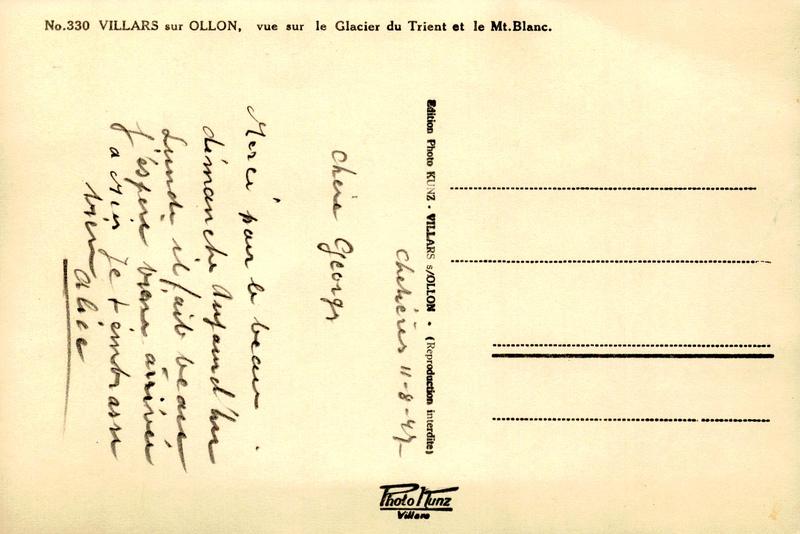 No.330 VILLARS sur OLLON, vue sur le Glacier du Trient et le Mt.Blanc.
Édition Photo KUNZ - VILLARS s/OLLON - (Reproduction interdite)
Chesières 11-8-47
Chère Georges
Merci pour le beau
dimanche Aujourd'hui
Lundi il fait beau
j'espère bien arriver
à Aix Je t'embrasse
bien
Alice
Photo Kunz
Villars